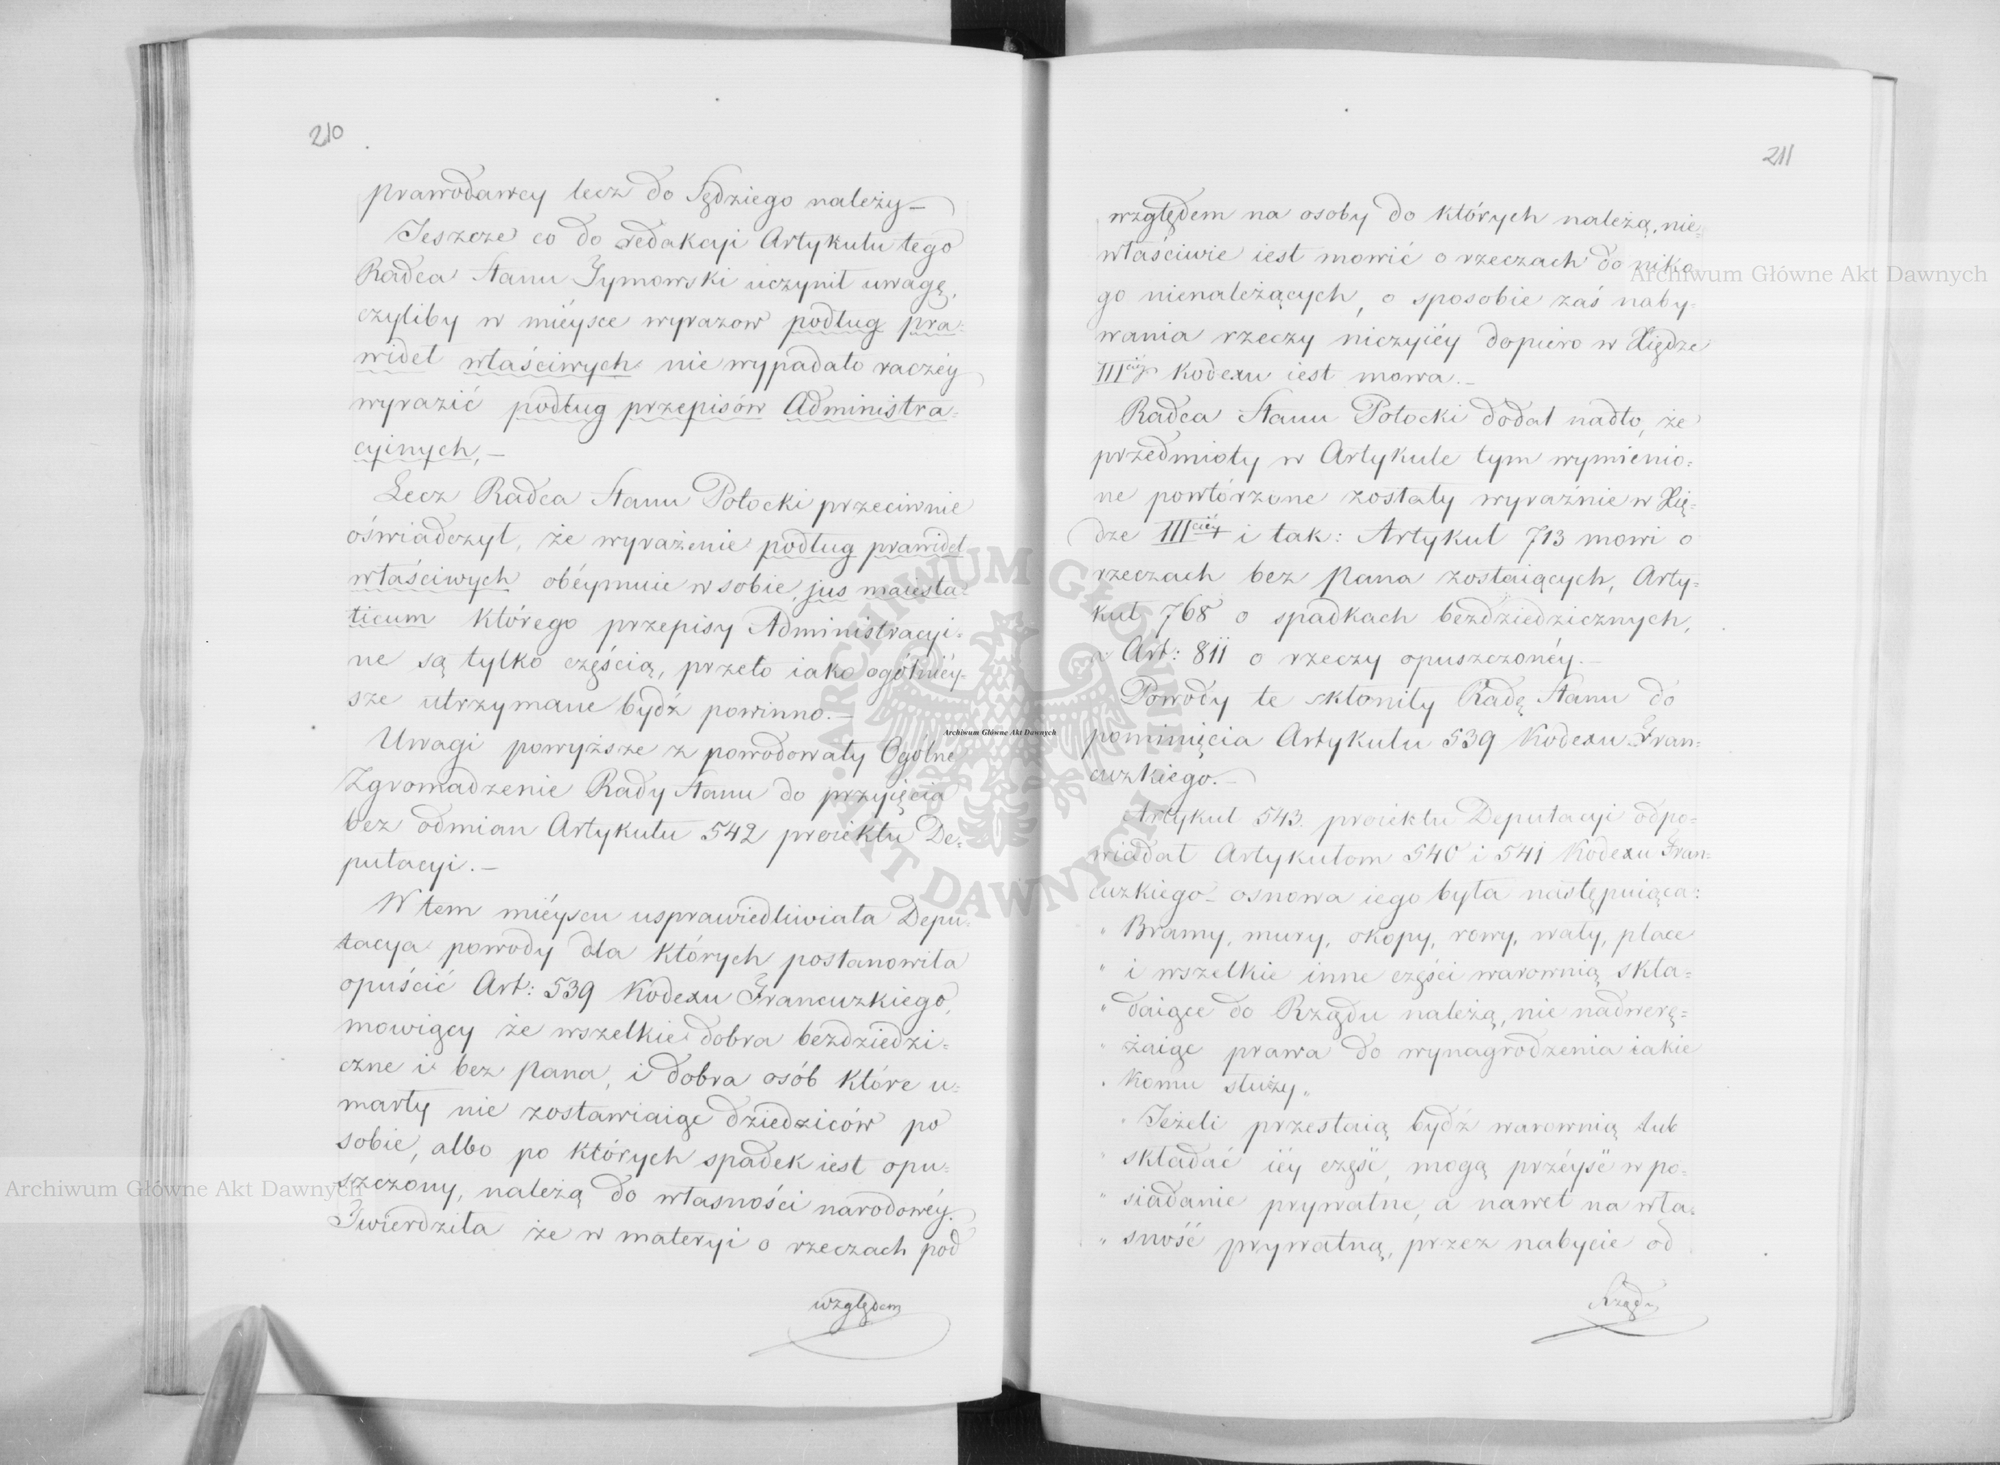 210
prawodawcy lecz do Sędziego należy —
Jeszcze co do redakcyi Artykułu tego
Radca Stanu Tymowski uczynił uwagę,
czyliby w mieysce wyrazow podług pra=
wideł właściwych nie wypadało raczéy
wyrazić podług przepisów Administra=
cyinych, —
Lecz Radca Stanu Potocki przeciwnie
oświadczył, że wyrażenie podług prawideł
właściwych obéymuie w sobie jus maiesta=
ticum którego przepisy Administracyi=
ne są tylko częścią, przeto iako ogólniéy=
sze utrzymane bydź powinno. —
Uwagi powyższe z powodowały Ogólne
Zgromadzenie Rady Stanu do przyięcia
bez odmian Artykułu 542 proiektu De=
putacyi. —
W tem miéyscu usprawiedliwiała Depu=
tacya powody dla których postanowiła
opuścić Art: 539 Kodexu Francuzkiego,
mowiący że wszelkie dobra bezdziedzi=
czne i bez Pana, i dobra osób które u=
marły nie zostawiaiąc dziedziców po
sobie, albo po których spadek iest opu=
szczony, należą do własności narodowéy.
Twierdziła że w materyi o rzeczach pod
względem
211
względem na osoby do których należą, nie=
właściwie iest mowić o rzeczach do niko
go nienależących, o sposobie zaś naby=
wania rzeczy niczyiéy dopiero w Xiędze
III ciéy Kodexu iest mowa. —
Radca Stanu Potocki dodał nadto, że
przedmioty w Artykule tym wymienio=
ne powtórzone zostały wyraźnie w Xię=
dze III ciéy i tak: Artykuł 713 mowi o
rzeczach bez Pana zostaiących, Arty=
kuł 768 o spadkach bezdziedzicznych,
a Art: 811 o rzeczy opuszczonéy. —
Powody te skłoniły Radę Stanu do
pominięcia Artykułu 539 Kodexu Fran=
cuzkiego. —
Artykuł 543 proiektu Deputacyi odpo=
wiadał Artykułom 540 i 541 Kodexu Fran=
cuzkiego — osnowa iego była następuiąca:
" Bramy, mury, okopy, rowy, wały, place
" i wszelkie inne części warownią skła=
" daiące do Rządu należą, nie nadwerę=
" żaiąc prawa do wynagrodzenia iakie
" komu służy „
" Jeżeli przestaią bydź warownią lub
" składać iéy część, mogą przéyść w po=
" siadanie prywatne, a nawet na wła=
" sność prywatną, przez nabycie od
Rządu
Archiwum Główne Akt Dawnych
Archiwum Główne Akt Dawnych
Archiwum Główne Akt Dawnych
ARCHIWUM GŁÓWNE AKT DAWNYCH